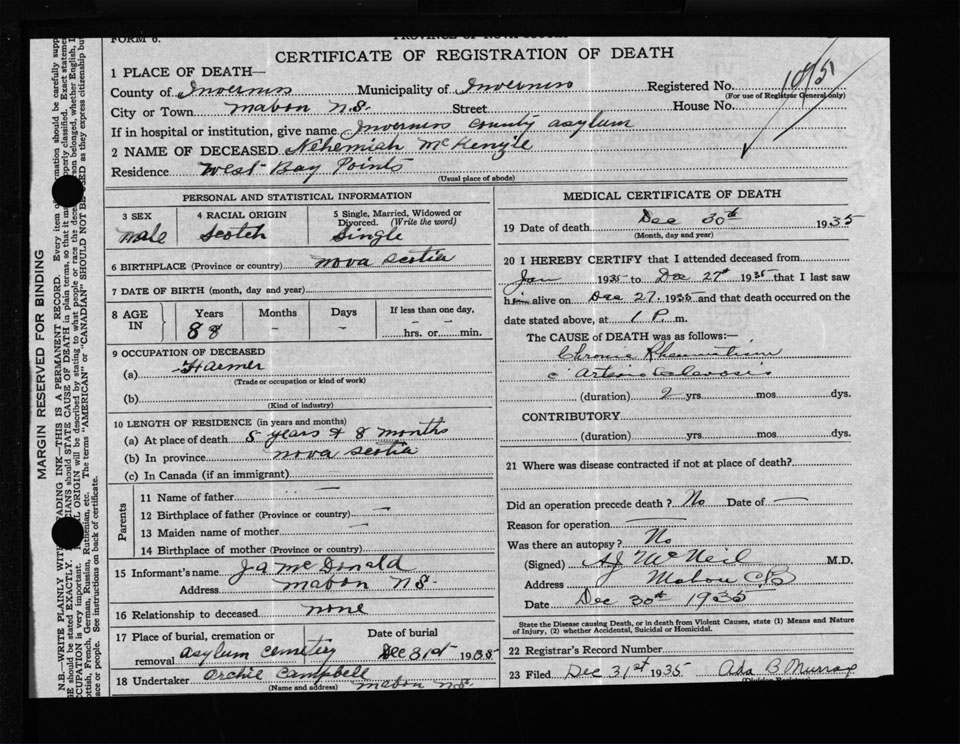 FORM 6.
CERTIFICATE OF REGISTRATION OF DEATH
1 PLACE OF DEATH—
County of Inverness Municipality of Inverness Registered No. 1095
(For use of Registrar General only)
City or Town Mabou N.S. Street House No.
If in hospital or institution, give name Inverness County asylum
2 NAME OF DECEASED Nehemiah McKenzie
Residence West Bay Points
(Usual place of abode)
PERSONAL AND STATISTICAL INFORMATION
3 SEX 4 RACIAL ORIGIN 5 Single, Married, Widowed or Divorced. (Write the word)
Male Scotch Single
6 BIRTHPLACE (Province or country) Nova Scotia
7 DATE OF BIRTH (month, day and year)
8 AGE IN Years Months Days If less than one day,
88 – – – –
hrs. or min.
9 OCCUPATION OF DECEASED
(a) Farmer
(Trade or occupation or kind of work)
(b)
(Kind of industry)
10 LENGTH OF RESIDENCE (in years and months)
(a) At place of death 5 years & 8 months
(b) In province Nova Scotia
(c) In Canada (if an immigrant)
Parents
11 Name of father —
12 Birthplace of father (Province or country) —
13 Maiden name of mother —
14 Birthplace of mother (Province or country)
15 Informant's name J A McDonald
Address Mabou N.S.
16 Relationship to deceased none
17 Place of burial, cremation or removal asylum cemetery Date of burial Dec 31st 1935
18 Undertaker Archie Campbell
(Name and address) Mabou N.S.
MEDICAL CERTIFICATE OF DEATH
19 Date of death Dec 30th 1935
(Month, day and year)
20 I HEREBY CERTIFY that I attended deceased from
Jan 1935 to Dec 27th 1935 that I last saw
him alive on Dec 27. 1935 and that death occurred on the
date stated above, at 1 P. m.
The CAUSE OF DEATH was as follows:—
Chronic Rheumatism
c arterio
(duration) 2 yrs. mos. dys.
CONTRIBUTORY
(duration) yrs. mos. dys.
21 Where was disease contracted if not at place of death?
Did an operation precede death? No Date of —
Reason for operation —
Was there an autopsy? No
(Signed) AJ McNeil M.D.
Address Mabou CB
Date Dec 30th 1935
State the Disease causing Death, or in death from Violent Causes, state (1) Means and Nature of Injury, (2) whether Accidental, Suicidal or Homicidal.
22 Registrar's Record Number
23 Filed Dec 31st 1935 Ada B Murray
MARGIN RESERVED FOR BINDING
N.B.—WRITE PLAINLY WITH FADING INK—THIS IS A PERMANENT RECORD. Every item of information should be carefully supp
be should be stated EXACTLY. CIANS should STATE CAUSE OF DEATH in plain terms, so that it may properly classified. Exact statement
CCUPATION is very important. ORIGIN will be described by stating to what people or race the deceased person belonged, whether English, I
ottish, French, German, Russian, Ruthenian, etc. The terms "AMERICAN" or "CANADIAN" SHOULD NOT BE USED as they express citizenship but
ace or people. See instructions on back of certificate.